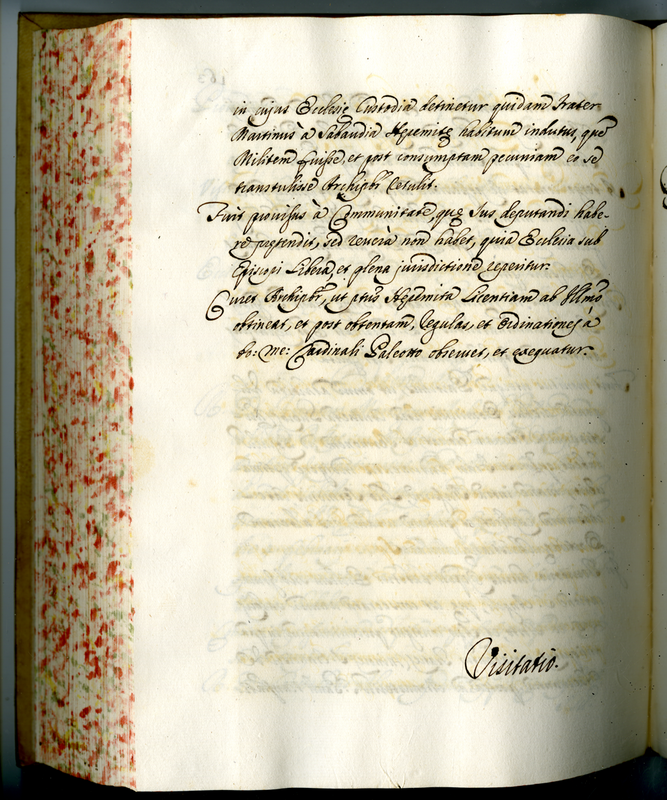 in cujus Ecclesię Custodia detinetur quidam Frater
Martinus à Sabaudia Hęremitę habitum indutus, quē
Militem fuisse, et post consumptam pecuniam eo se
transtulisse Archipbr̄ retulit.
Fuit provisus à Communitate, quę Jus deputandi habe-
re prętendit, sed reverà non habet, quia Ecclesia sub
Episcopi Libera, et plena jurisdictione reperitur.
Curet Archipbr̄, ut ptūs Hęremita Licentiam ab Illmō
obtineat, et post obtentam, regulas, et Ordinationes à
bo: me: Cardinali Paleotto observet, et exequatur.
Visitatio.